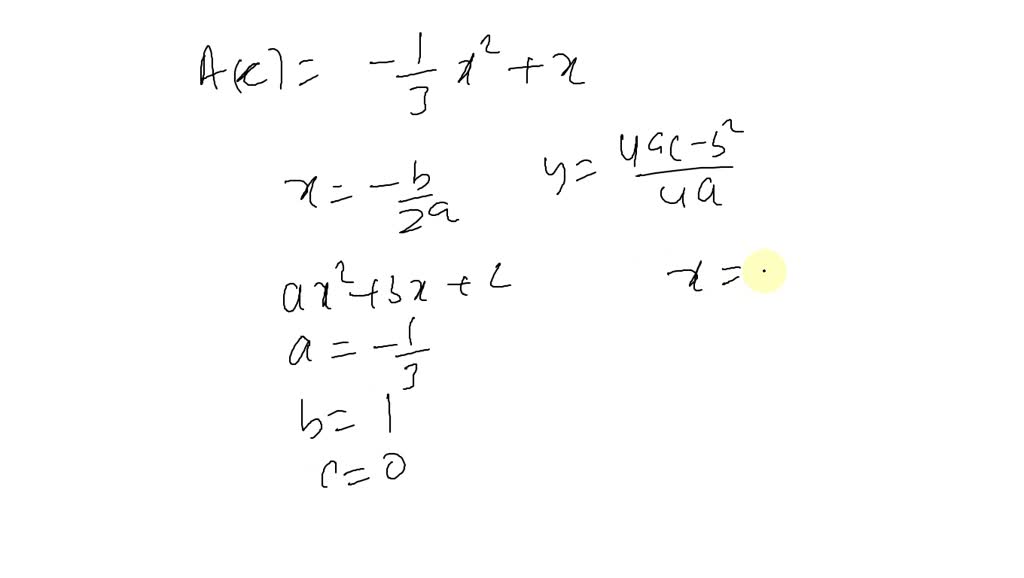 A(x) = -1/3 x² + x
x = -b/2a
y = 4ac-b²/4a
ax² + bx + c
x =
a = -1/3
b = 1
c = 0